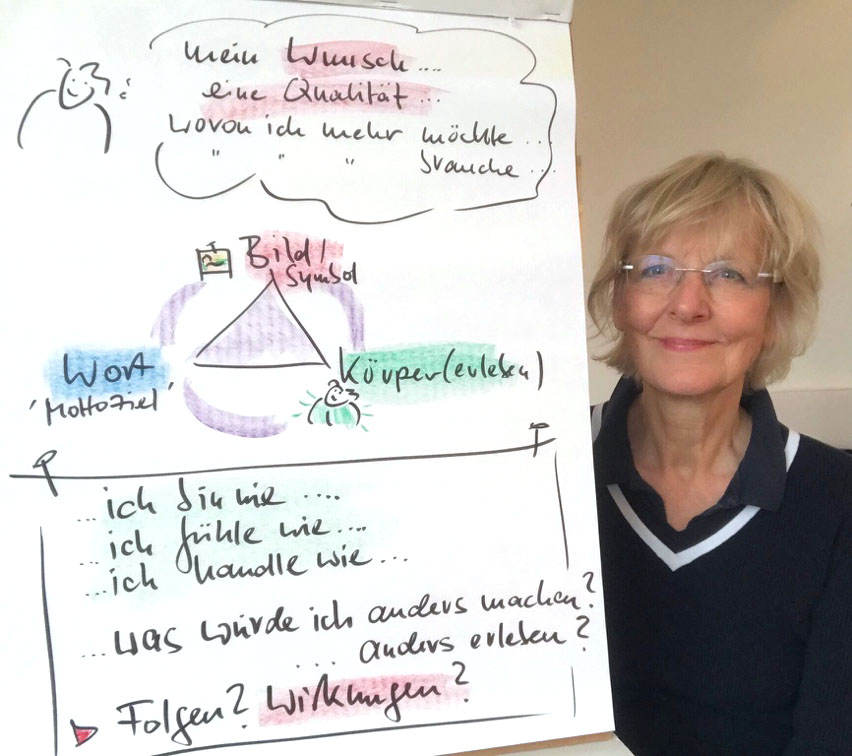 mein Wunsch....
eine Qualität...
wovon ich mehr möchte...
" " " brauche...
Bild/
Symbol
Wort
'Mottoziel'
Körper(erleben)
...ich bin wie ....
...ich fühle wie....
...ich handle wie...
...was würde ich anders machen?
.... anders erleben?
Folgen? Wirkungen?